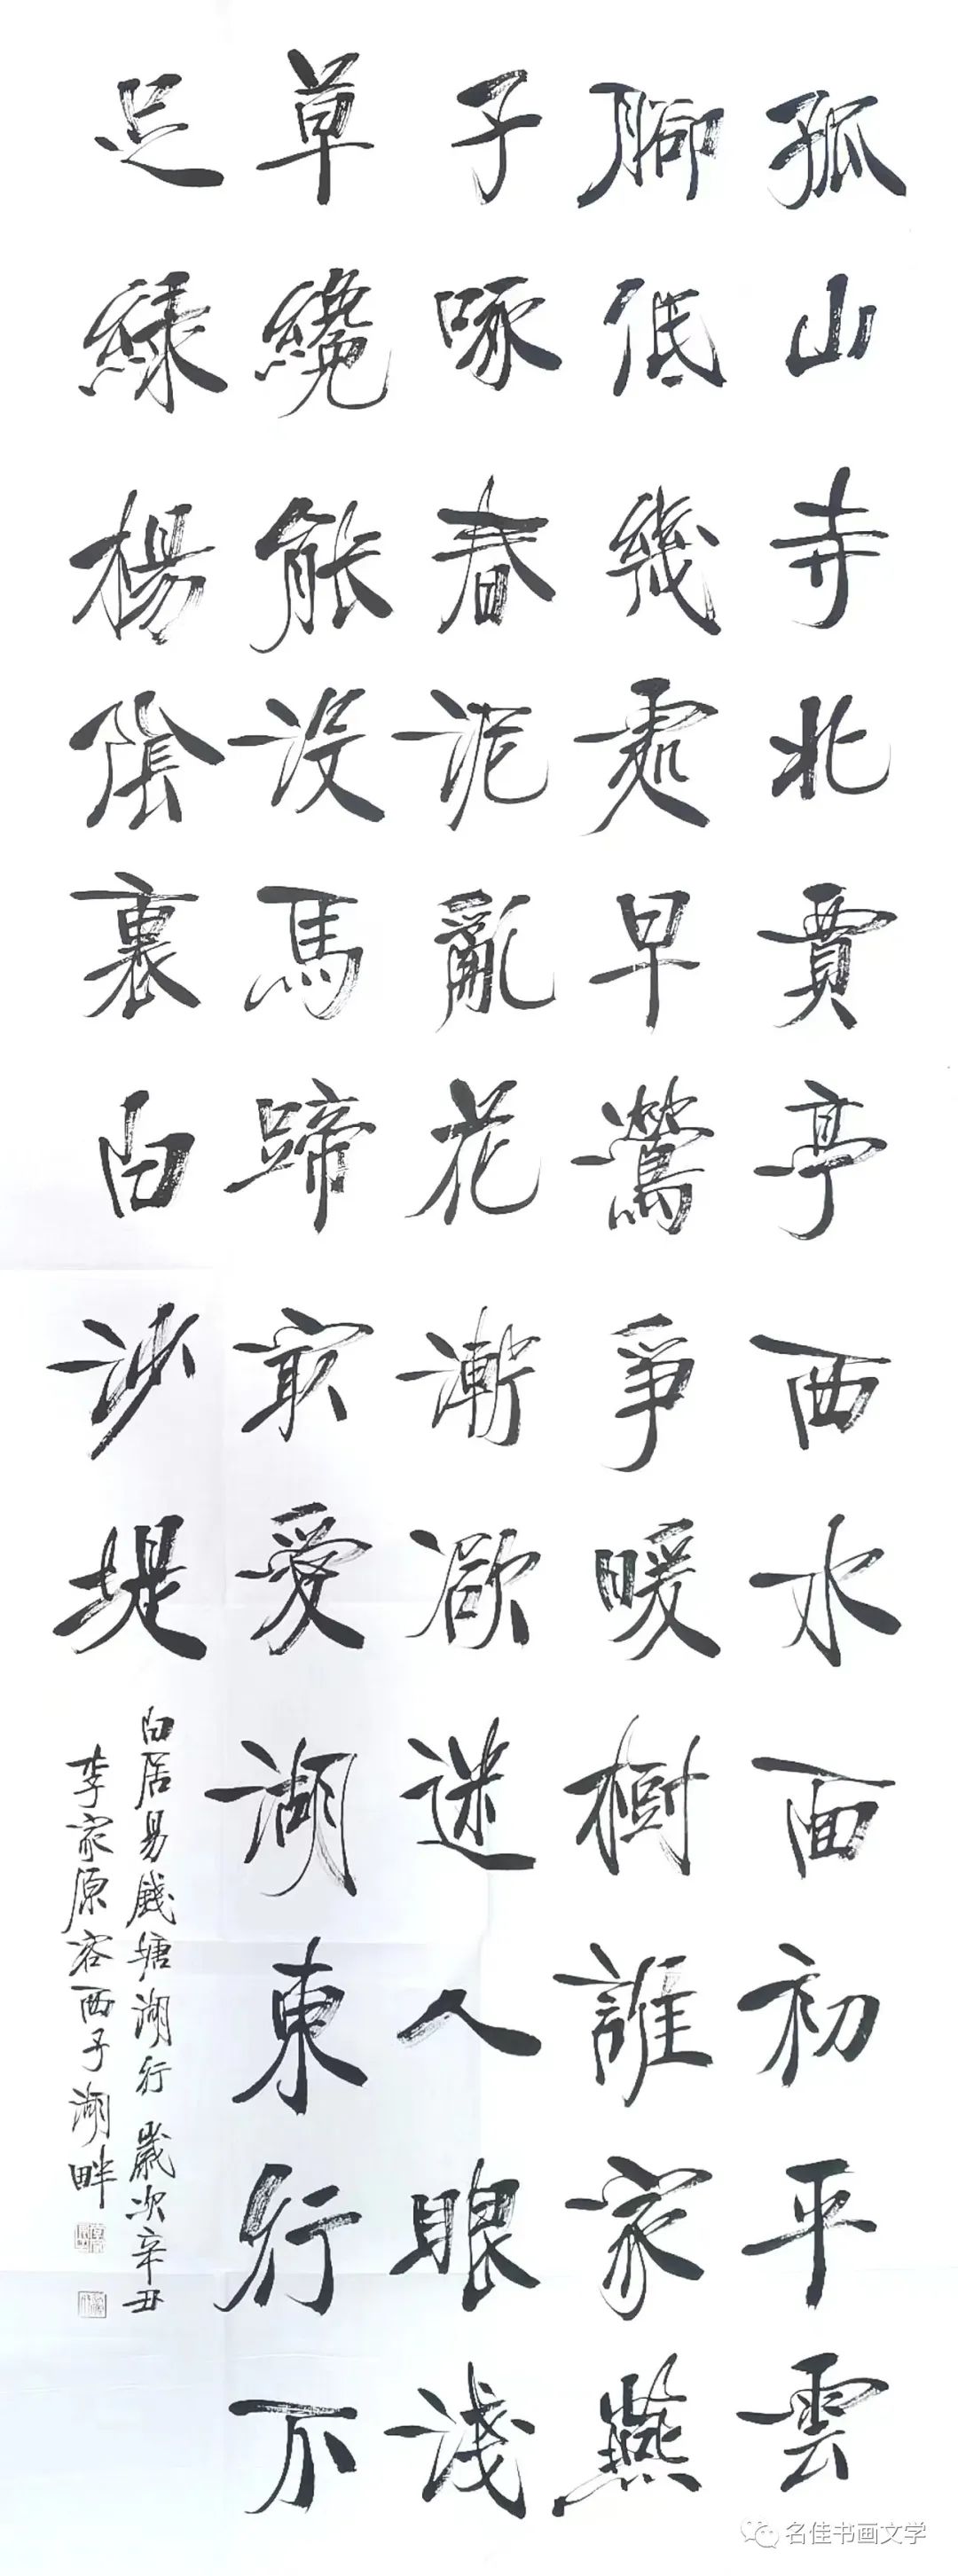 孤山寺北賈亭西水面初平雲
腳低幾處早鶯爭暖樹誰家燕
子啄春泥亂花漸欲迷人眼淺
草纔能没馬蹄最愛湖東行不
足綠楊陰裏白沙堤
白居易錢塘湖行歲次辛丑
李家原客西子湖畔
名佳书画文学